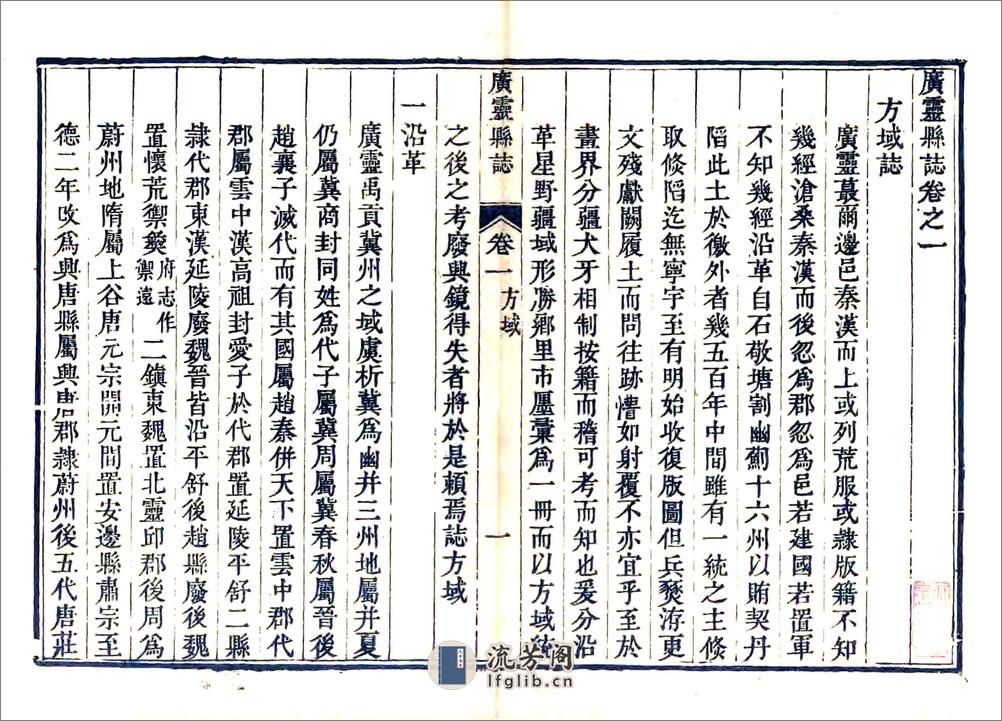 廣靈縣誌卷之一
方域誌
廣靈蕞爾邊邑秦漢而上或列荒服或隸版籍不知
幾經滄桑秦漢而後忽爲郡忽爲邑若建國若置軍
不知幾經沿革自石敬塘割幽薊十六州以賄契丹
陷此土於徼外者幾五百年中間雖有一統之主倐
取倐陷迄無寧宇至有明始收復版圖但兵燹洊更
文殘獻闕履土而問往跡懵如射覆不亦宜乎至於
畫界分疆犬牙相制按籍而稽可考而知也爰分沿
革星野疆域形勝鄉里市廛彚爲一冊而以方域統
之後之考廢興鏡得失者將於是賴焉誌方域
廣靈縣誌 卷一 方域 一
一沿革
廣靈禹貢冀州之域虞析冀爲幽并三州地屬并夏
仍屬冀商封同姓爲代子屬冀周屬冀春秋屬晉後
趙襄子滅代而有其國屬趙秦併天下置雲中郡代
郡屬雲中漢高祖封愛子於代郡置延陵平舒二縣
隸代郡東漢延陵廢魏晉皆沿平舒後趙縣廢後魏
置懷荒禦夷府志作禦遠二鎮東魏置北靈邱郡後周爲
蔚州地隋屬上谷唐元宗開元間置安邊縣肅宗至
德二年改爲興唐縣屬興唐郡隸蔚州後五代唐莊
流芳阁
lfglib.cn